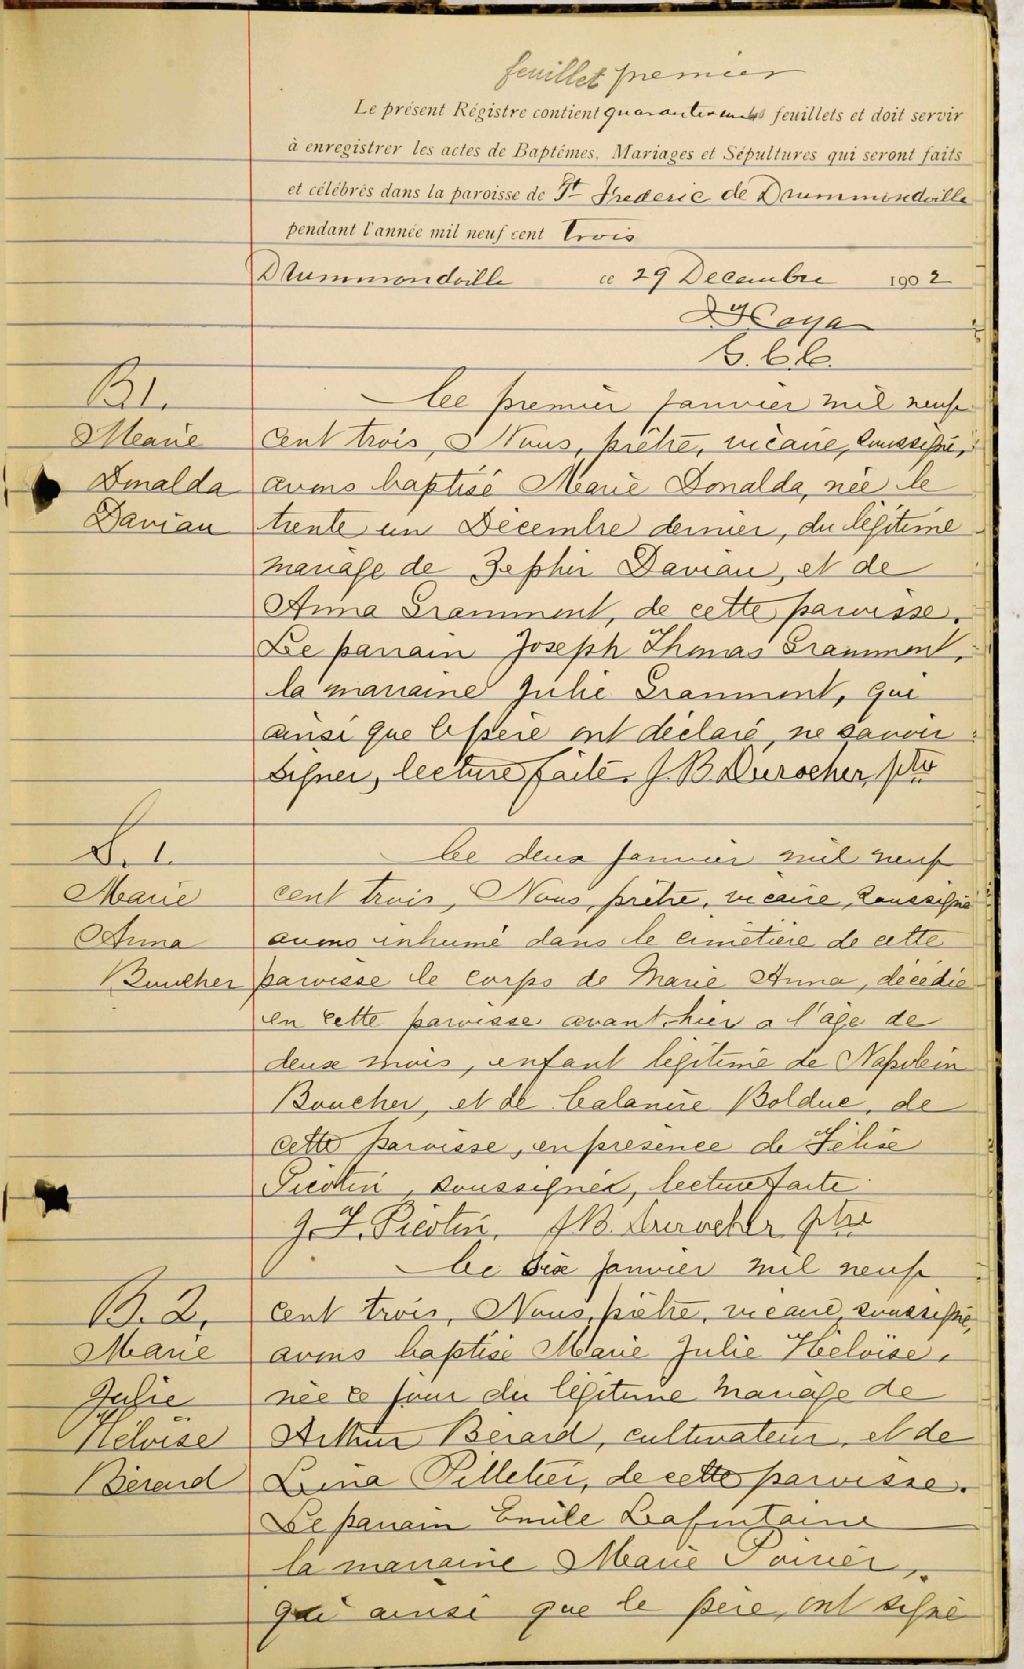 feuillet premier
Le présent Régistre contient feuillets et doit servir
à enregistrer les actes de Baptêmes, Mariages et Sépultures qui seront faits
et célébrés dans la paroisse de St Frederic de Drummondville
pendant l'année mil neuf cent trois
Drummondville ce 29 Decembre 1902
G. C. C.
B 1.
Marie
Donalda
Daviau
Ce premier janvier mil neuf
cent trois, Nous, prêtre, vicaire, soussigné,
avons baptisé Marie Donalda, née le
trente un Décembre dernier, du légitime
mariage de Zephir Daviau, et de
Anna Grammont, de cette paroisse.
Le parrain Joseph Thomas Grammont,
la marraine Julie Grammont, qui
ainsi que le père ont déclaré ne savoir
signer, lecture faite. J. B. Durocher, ptre
S. 1.
Marie
Anna
Boucher
Ce deux janvier mil neuf
cent trois, Nous, prêtre, vicaire, soussigné
avons inhumé dans le cimetière de cette
paroisse le corps de Marie Anna, décédée
en cette paroisse avant hier a l'âge de
deux mois, enfant légitime de Napoléin
Boucher, et de Bolduc, de
cette paroisse, en présence de Félise
Picotin, soussigné, lecture faite.
J. F. Picotin, J. B. Durocher ptre
B. 2,
Marie
Julie
Héloïse
Bérard
Ce six janvier mil neuf
cent trois, Nous, prêtre, vicaire, soussigné,
avons baptisé Marie Julie Héloïse,
née ce jour du légitime mariage de
Arthur Bérard, cultivateur, et de
Lena Pelletier, de cette paroisse.
Le parrain Emile Lafontaine
la marraine Marie Poirier,
qui ainsi que le père, ont signé